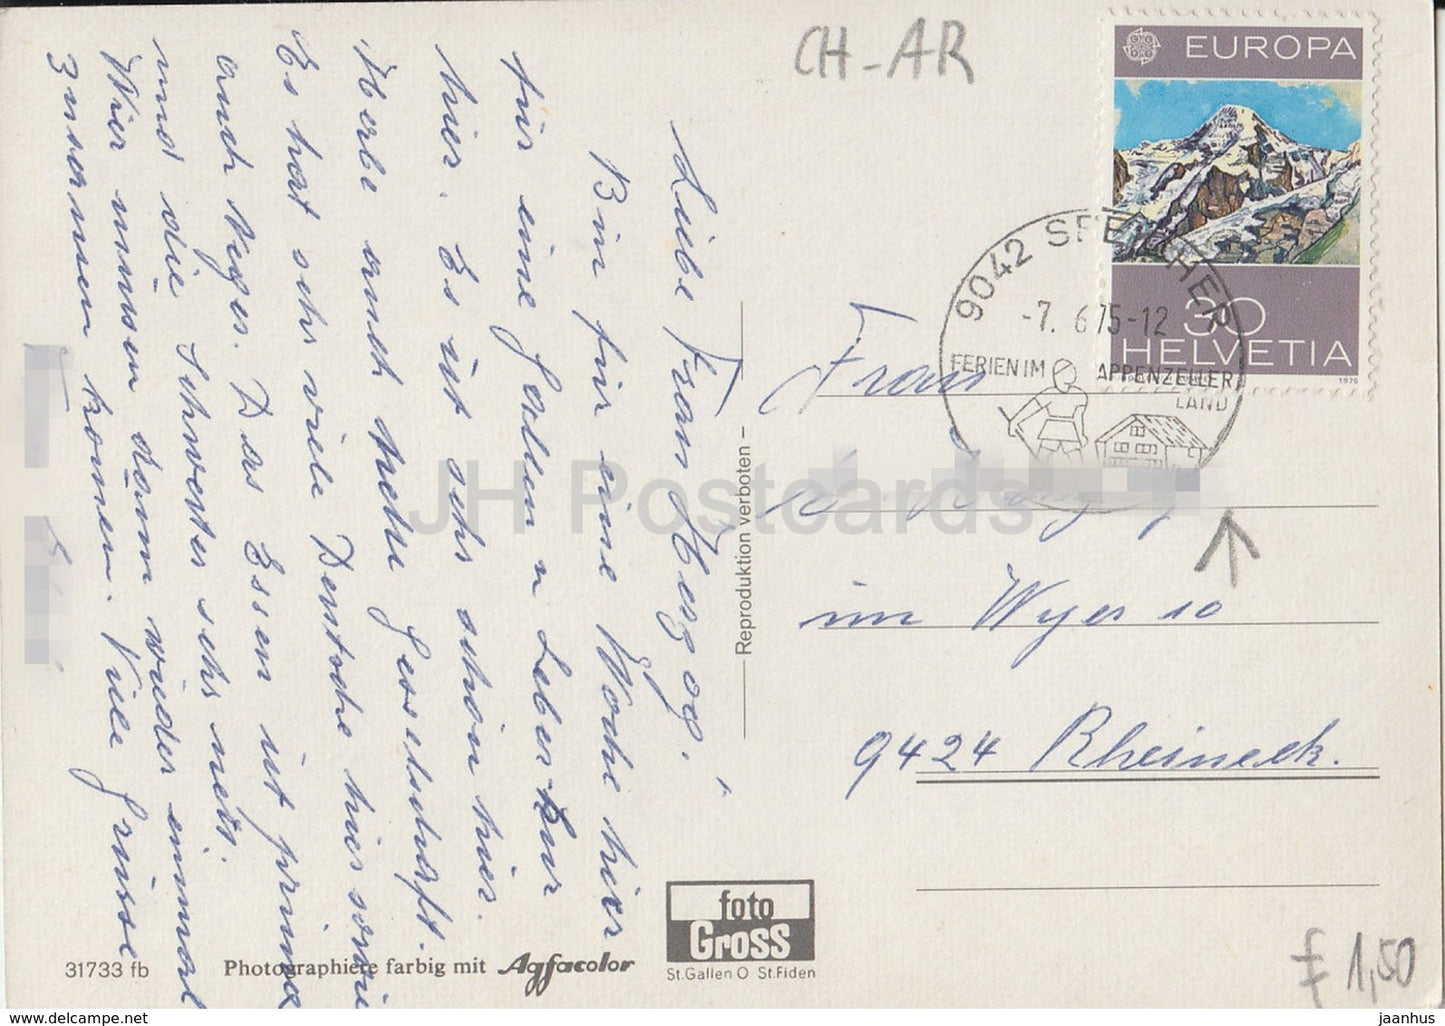 CH-AR
EUROPA
30
HELVETIA
1975
9042 SPEICHER
-7. 6 75-12
FERIEN IM APPENZELLER
LAND
Liebe Frau Herzog!
Bin für eine Woche hier
für eine Gallen u Leber-Kur
hier. Es ist sehr schön hier.
Habe auch nette Gesellschaft.
Es hat sehr viele Deutsche hier sowie
auch Neger. Das Essen ist prima
und die Schwester sehr nett.
Wir müssen dann wieder einmal
zusammen kommen. Viele Grüsse
Frau
im Wyer 10
9424 Rheineck.
Reproduktion verboten
foto
Gross
St.Gallen O St.Fiden
31733 fb
Photographiere farbig mit Agfacolor
f 1,50
JH Postcards
www.delcampe.net
jaanhus